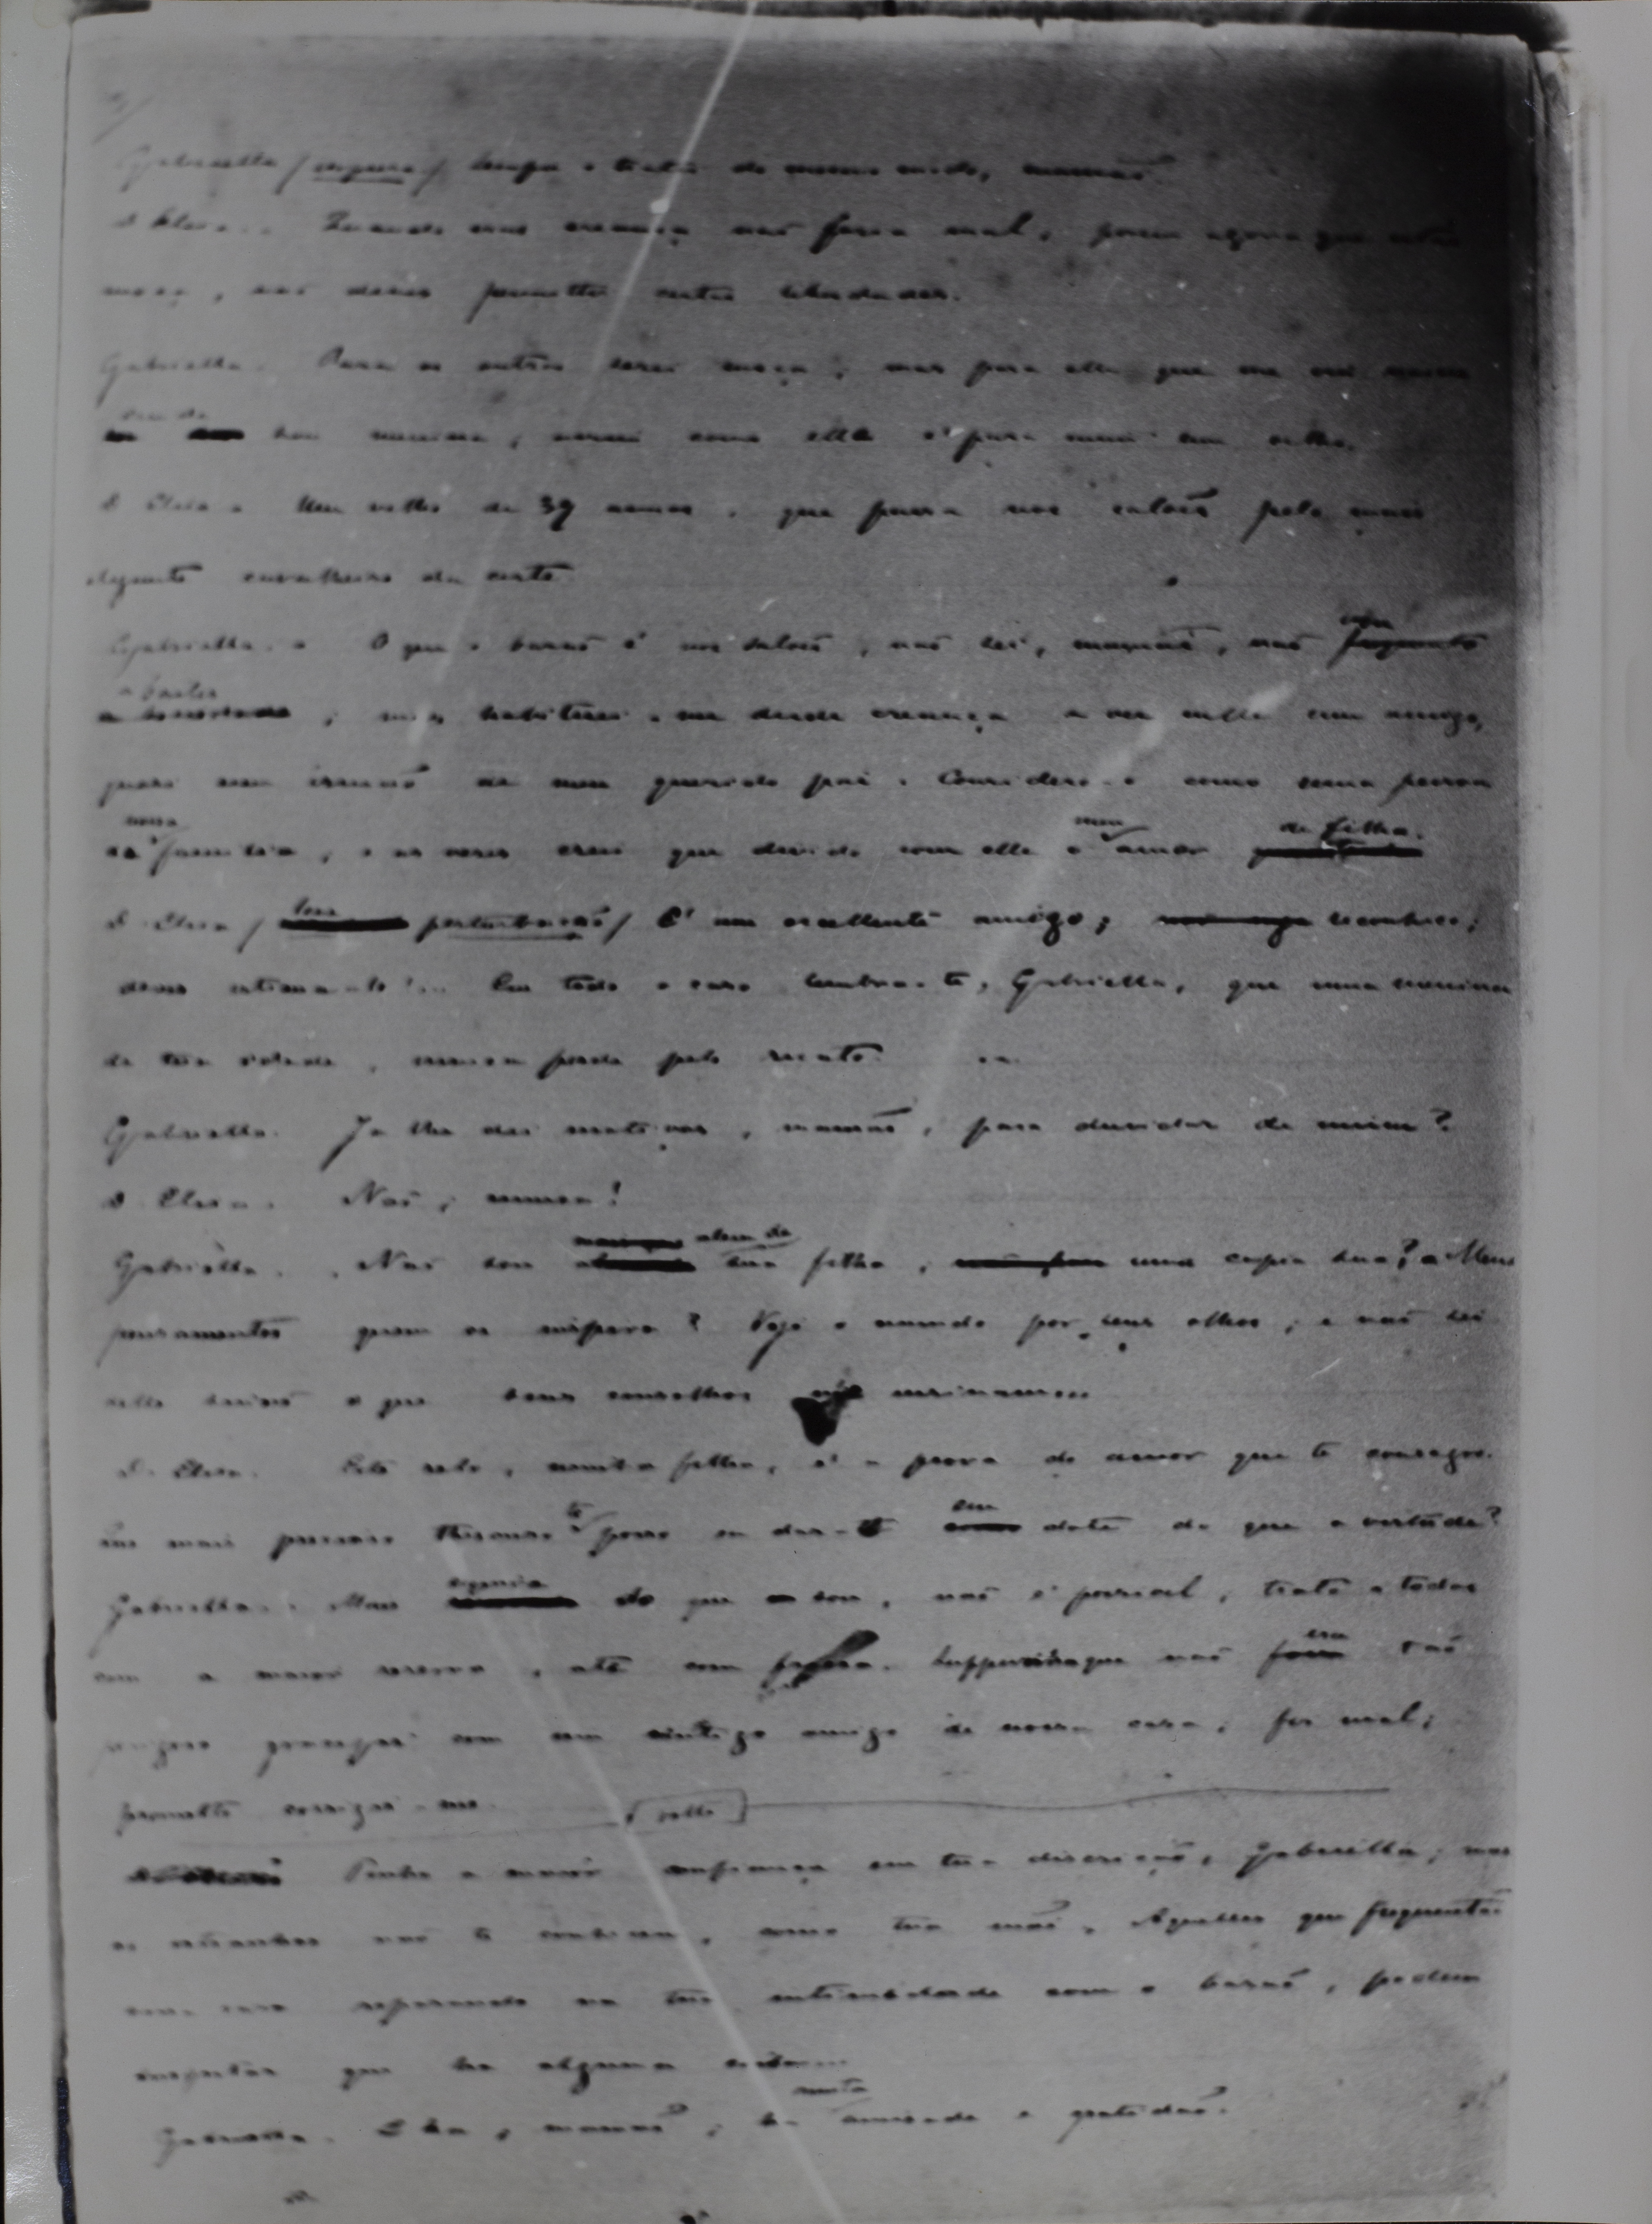 Gabriella / / sempre o tratei do mesmo modo, mamãe.
D. Elisa. Quando eras creança não fazia mal, porem agora que estás
moça, não deves permittir certas liberdades.
Gabriella. Para os outros serei moça; mas para elle que me viu
sou menina, assim como elle é para mim um velho.
D. Elisa. Um velho de 39 annos, que passa nos salões pelo mais
elegante cavalheiro da corte.
Gabriella. O que o barão é nos salões, não sei, mamãe, não
; mas habituei-me desde creança a ver nelle um amigo,
quasi um irmão de meu querido pai. Considero-o como uma pessoa
nossa
da familia, e as vezes creio que divido com elle o meu amor de filha.
D. Elisa / perturbação / É um excellente amigo; reconheço;
deves estima-lo... Em todo o caso lembra-te, Gabriella, que uma menina
de tua idade, nunca perde pelo recato.
Gabriella. Ja lhe dei motivos, mamãe, para duvidar de mim?
D. Elisa. Não, nunca!
alem de
Gabriella. Não sou tua filha, uma copia sua? Meus
pensamentos quem os inspira? Vejo o mundo por seus olhos; e não sei
delle senão o que seus conselhos me ensinaram
D. Elisa. Este zelo, minha filha, é a prova do amor que te consagro.
Que mais precioso thesouro posso eu dar-te em dote do que a virtude?
Gabriella. Mais do que sou, não é possivel, trato a todos
com a maior reserva, até com frieza. Suppunha que não era tão
gracejar com um antigo amigo de nossa casa; fiz mal;
prometto corrigir-me.
volta
Tenho a maior confiança em tua discrição, Gabriella; mas
os estranhos não te conhecem, como tua mãe. Aquelles que frequentão
nossa casa reparando na tua intimidade com o barão, podem
suspeitar que ha alguma
muita
Gabriella. E ha, mamãe; ha amisade e gratidão.